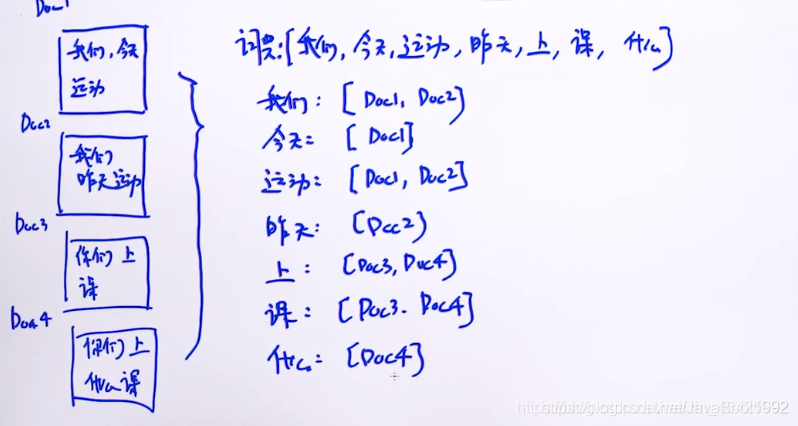 Doc1
我们, 今天
运动
Doc2
我们
昨天运动
Doc3
你们 上
课
Doc4
你们 上
什么课
词典:[我们, 今天, 运动, 昨天, 上, 课, 什么]
我们: [Doc1, Doc2]
今天: [Doc1]
运动: [Doc1, Doc2]
昨天: [Doc2]
上: [Doc3, Doc4]
课: [Doc3. Doc4]
什么: [Doc4]